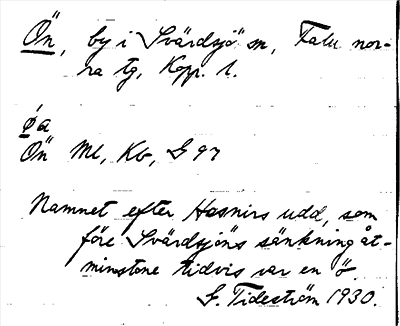 Ön, by i Svärdsjö sn, Falu nor-
ra tg, Kopp. l.
ø̀a
Ön Ml, Kb, G 97
Namnet efter Hasnirs udd, som
före Svärdsjöns sänkning åt-
minstone tidvis var en ö.
G. Tideström 1930.